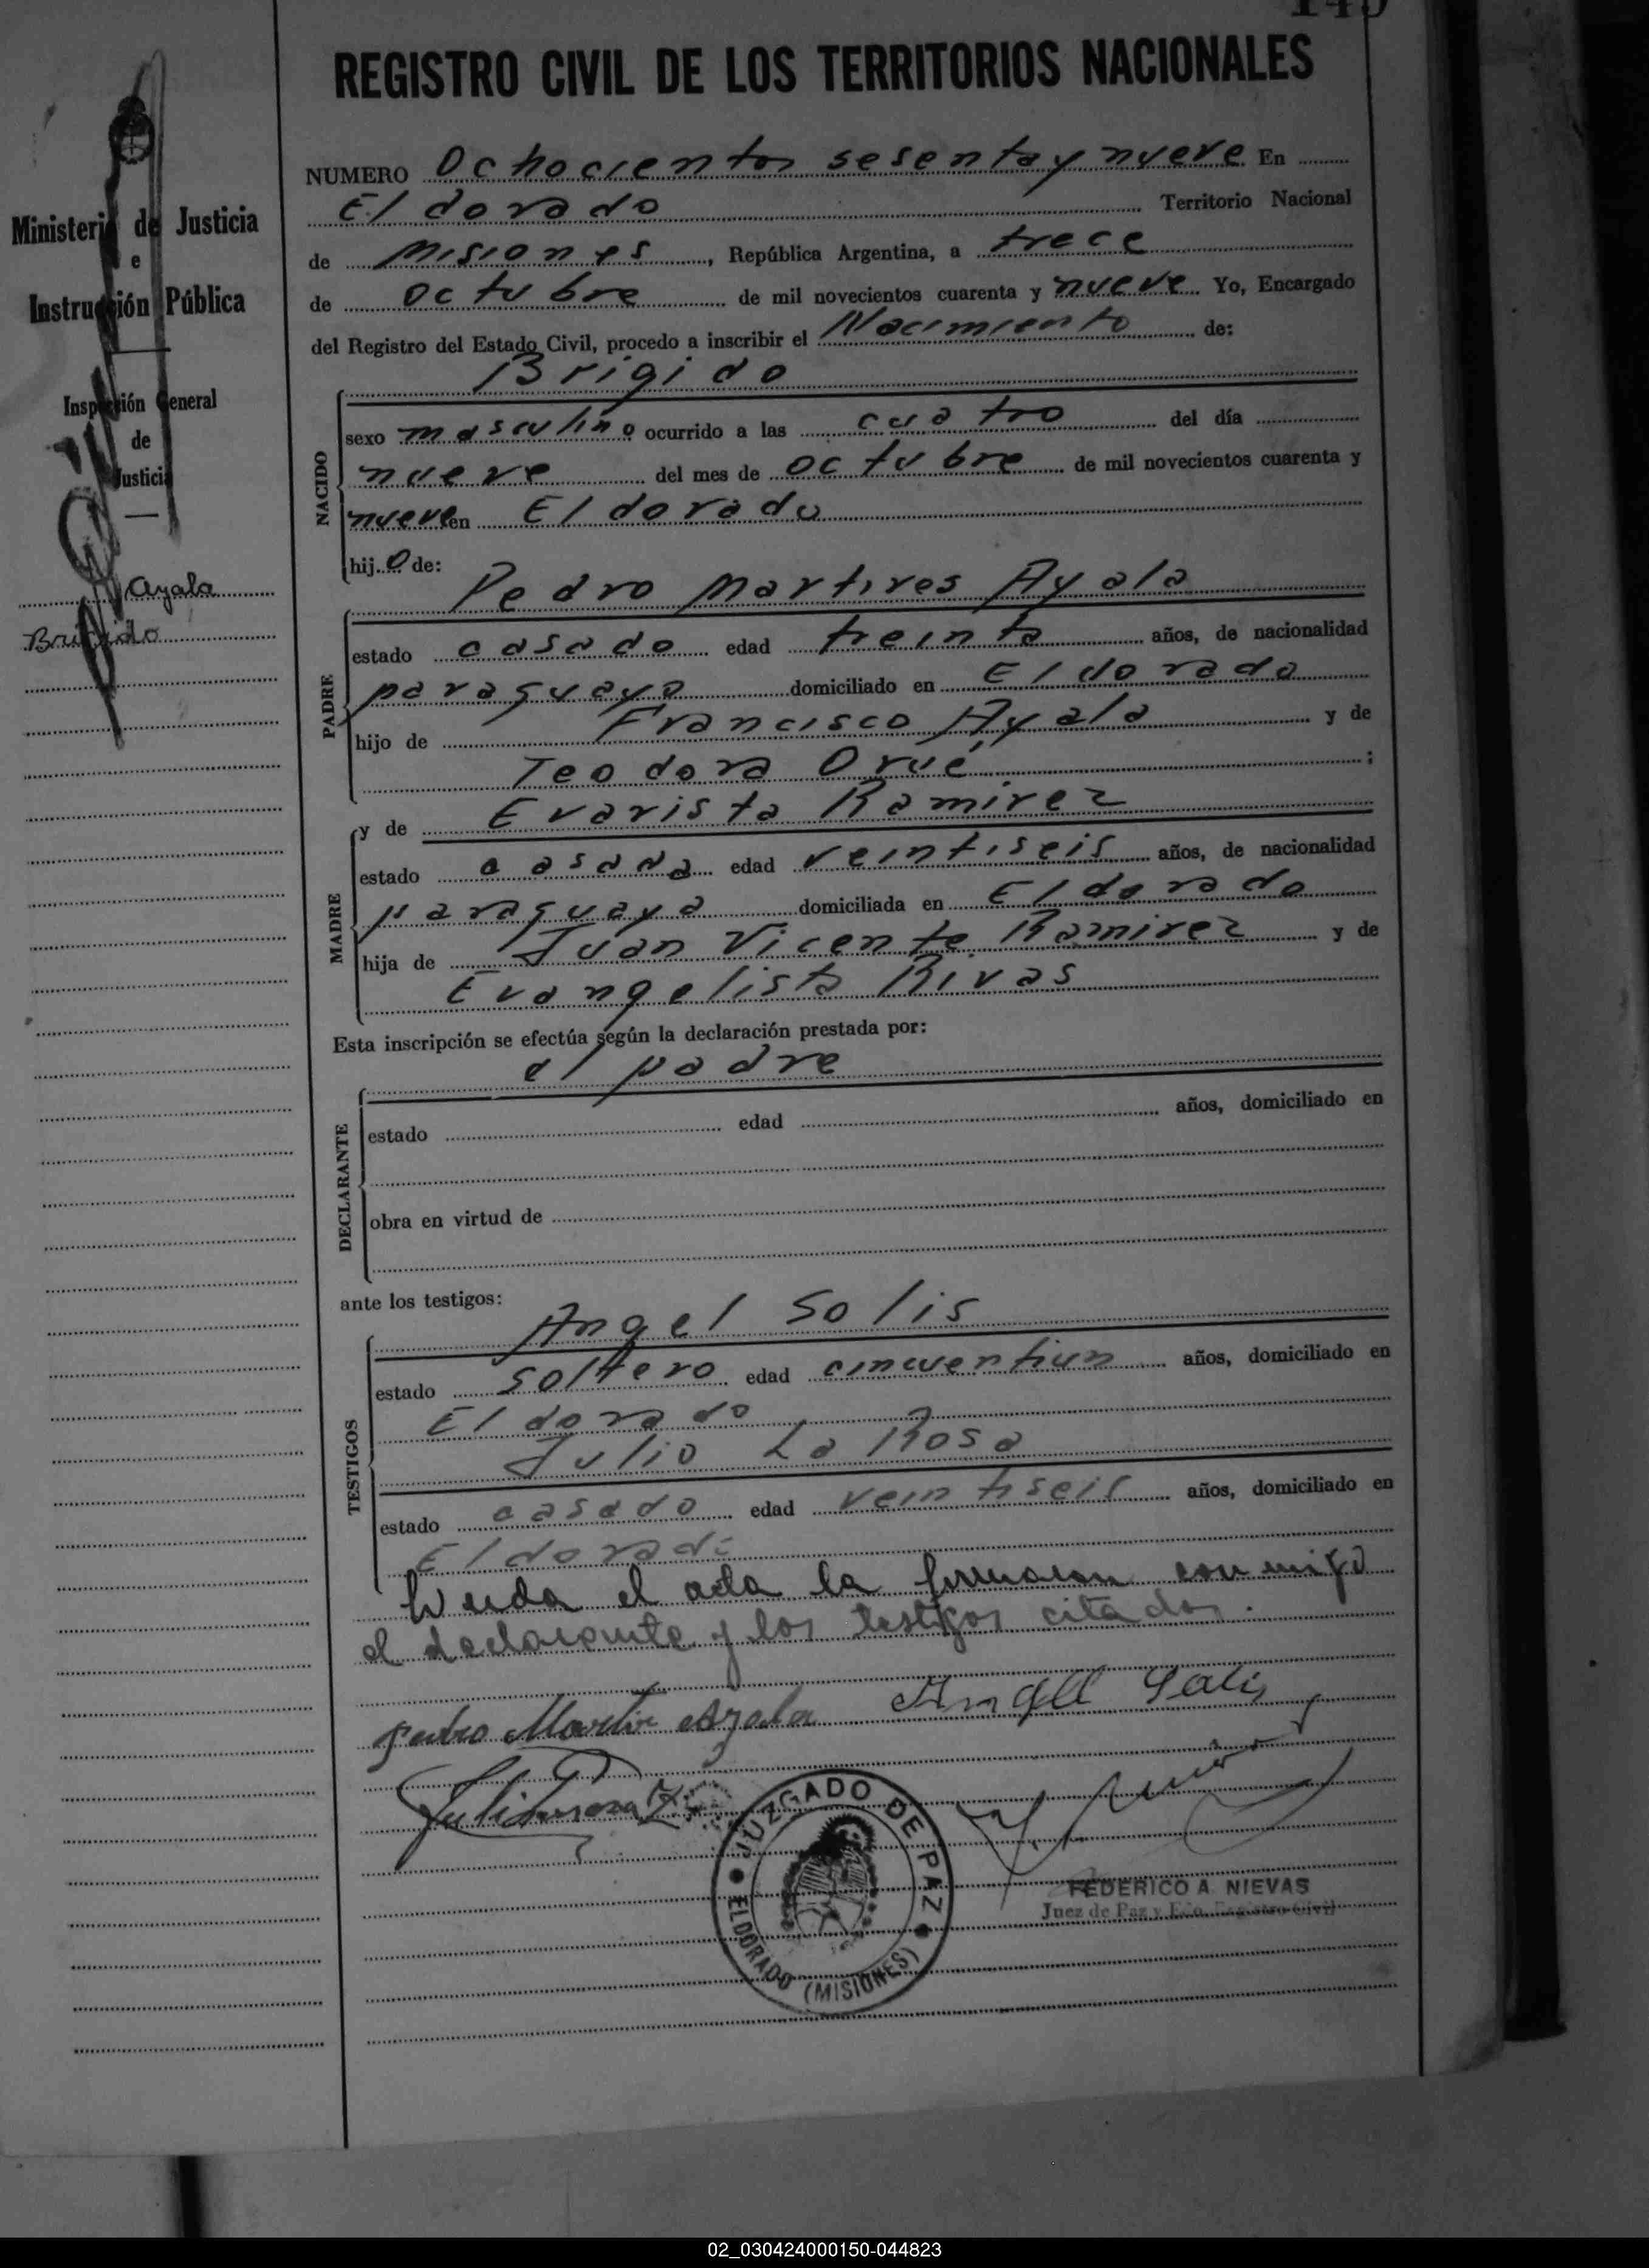 145
REGISTRO CIVIL DE LOS TERRITORIOS NACIONALES
Ministerio de Justicia
e
Instrucción Pública
Inspección General
de
Justicia
Ayala
Brigido
NUMERO Ochocientos sesenta y nueve En
Eldorado Territorio Nacional
de Misiones, República Argentina, a trece
de octubre de mil novecientos cuarenta y nueve Yo, Encargado
del Registro del Estado Civil, procedo a inscribir el Nacimiento de:
Brigido
NACIDO
sexo masculino ocurrido a las cuatro del día
nueve del mes de octubre de mil novecientos cuarenta y
nueve en Eldorado
hijo de:
Pedro Martires Ayala
PADRE
estado casado edad treinta años, de nacionalidad
paraguaya domiciliado en Eldorado
hijo de Francisco Ayala y de
Teodora Orué ;
y de Evarista Ramirez
MADRE
estado casada edad veintiseis años, de nacionalidad
paraguaya domiciliada en Eldorado
hija de Juan Vicente Ramirez y de
Evangelista Rivas
Esta inscripción se efectúa según la declaración prestada por:
el padre
DECLARANTE
estado edad años, domiciliado en
obra en virtud de
ante los testigos:
Angel Solis
TESTIGOS
estado soltero edad cincuentiun años, domiciliado en
Eldorado
Julio La Rosa
estado casado edad veintiseis años, domiciliado en
Eldorado
Leida el acta la firmaron conmigo
el declarante y los testigos citados.
Pedro Martir Ayala Angel Solis
JUZGADO DE PAZ
ELDORADO (MISIONES)
FEDERICO A. NIEVAS
Juez de Paz y Eco. Registro Civil
02_030424000150-044823